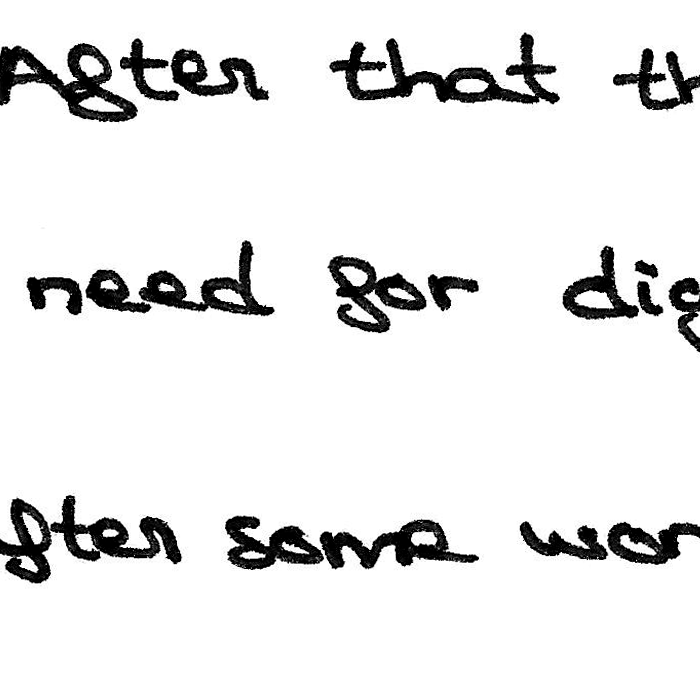 After that th
need for dig
fter some wor